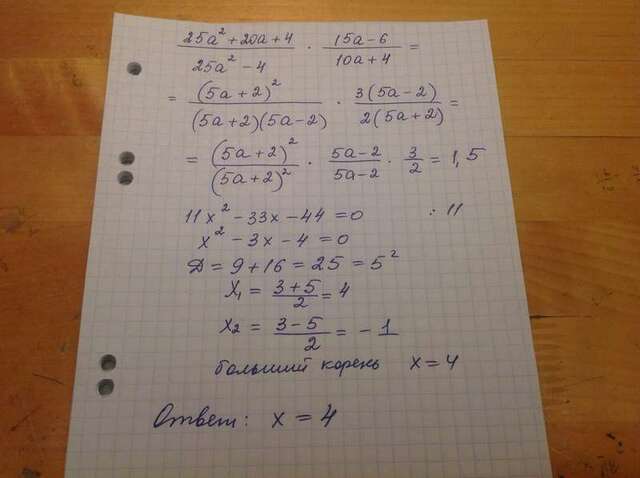 (25a² + 20a + 4)/(25a² - 4) · (15a - 6)/(10a + 4) =
= (5a + 2)²/((5a + 2)(5a - 2)) · 3(5a - 2)/(2(5a + 2)) =
= (5a + 2)²/(5a + 2)² · (5a - 2)/(5a - 2) · 3/2 = 1,5
11x² - 33x - 44 = 0 : 11
x² - 3x - 4 = 0
Д = 9 + 16 = 25 = 5²
x₁ = (3 + 5)/2 = 4
x₂ = (3 - 5)/2 = - 1
больший корень x = 4
Ответ: x = 4